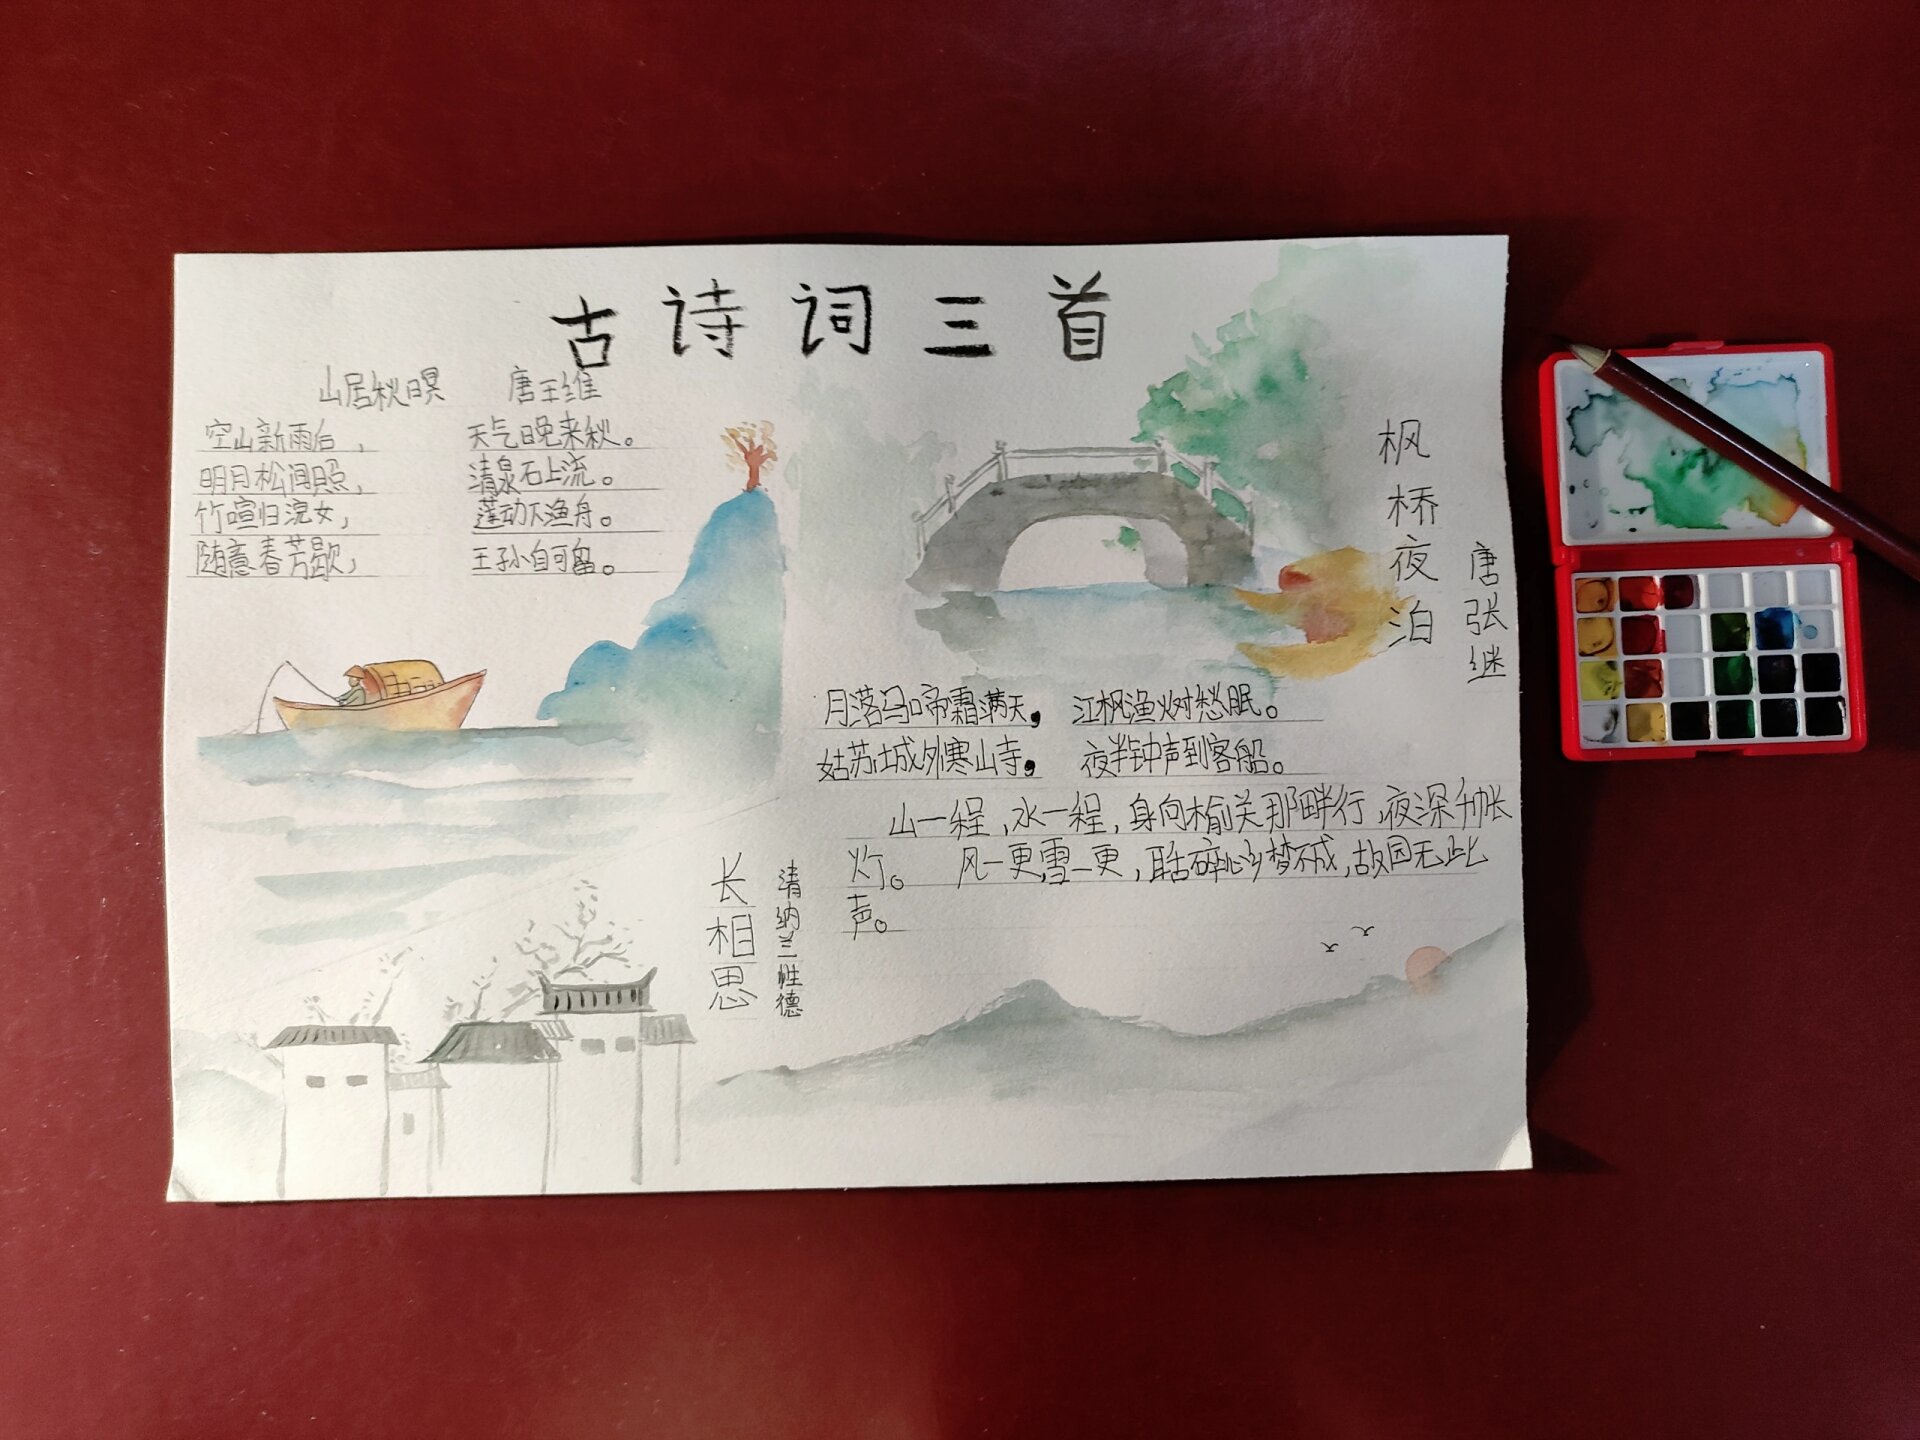 古诗词三首
山居秋暝 唐王维
空山新雨后， 天气晚来秋。
明月松间照， 清泉石上流。
竹喧归浣女， 莲动下渔舟。
随意春芳歇， 王孙自可留。
枫桥夜泊
唐张继
月落乌啼霜满天， 江枫渔火对愁眠。
姑苏城外寒山寺， 夜半钟声到客船。
长相思
清纳兰性德
山一程，水一程，身向榆关那畔行，夜深千帐
灯。 风一更，雪一更，聒碎乡心梦不成，故园无此
声。